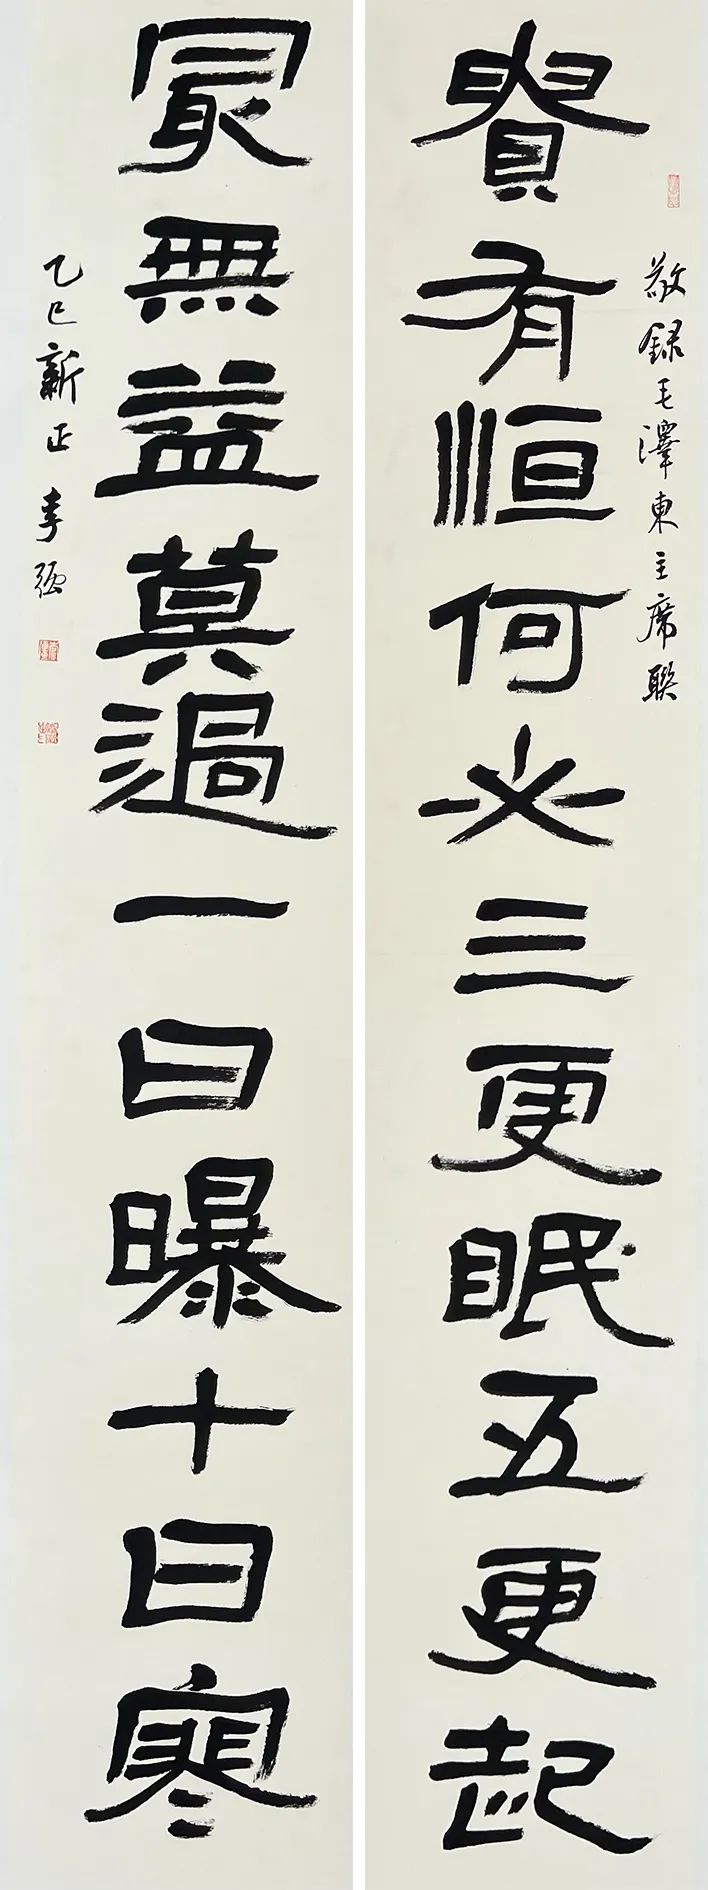 敬録毛澤東主席聯
貴有恒何必三更眠五更起
最無益莫過一日曝十日寒
乙巳新正 李強